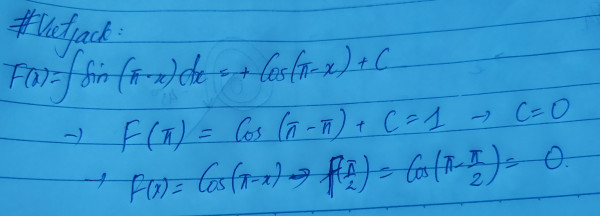 #Vietjack:
F(x) = ∫ Sin (π - x) dx = + Cos(π - x) + C
→ F(π) = Cos (π - π) + C = 1 → C = 0
→ F(x) = Cos(π - x) → F(π/2) = Cos(π - π/2) = 0.